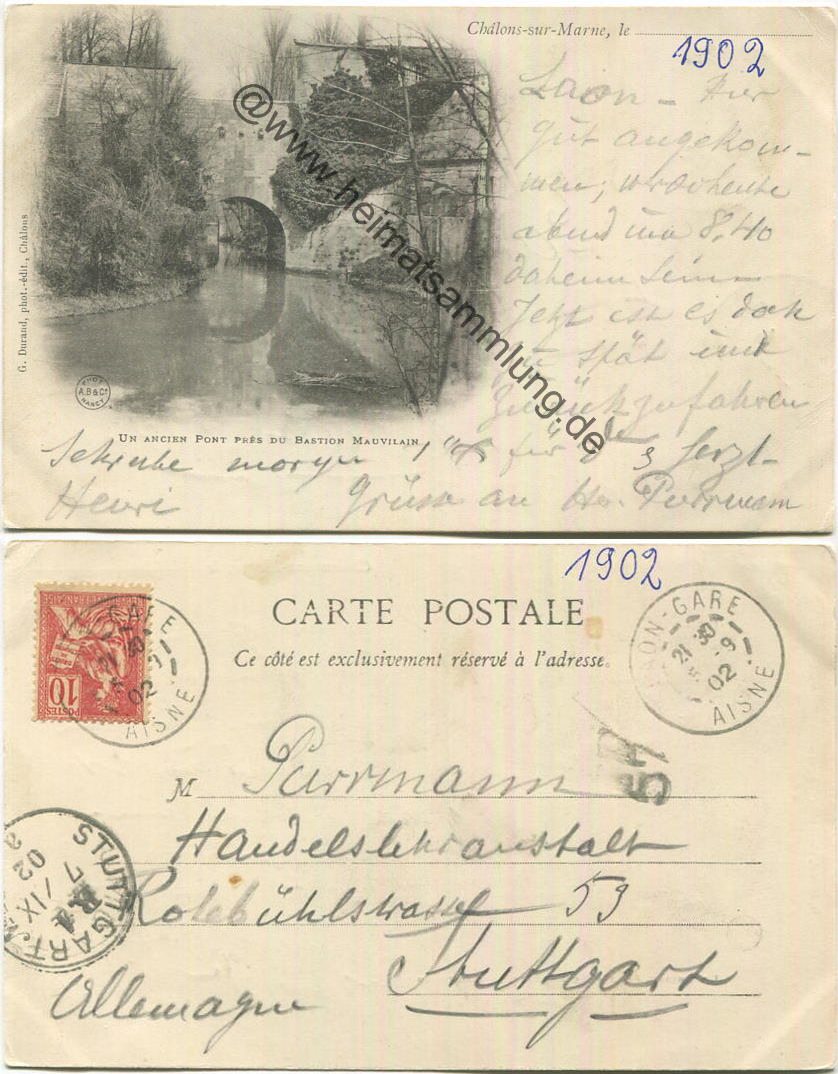 Châlons-sur-Marne, le
1902
Laon - Hier
gut angekom-
men; werde heute
abend um 8.40
daheim sein -
Jetzt ist es doch
zu spät um
zurückzufahren
G. Durand, phot.-édit., Châlons
PHOT
A.B & Cº
NANCY
UN ANCIEN PONT PRÈS DU BASTION MAUVILAIN
Schreibe morgen für Herzl.
Henri Grüsse an Hr. Purrmann
@www.heimatsammlung.de
1902
CARTE POSTALE
Ce côté est exclusivement réservé à l'adresse.
10 POSTES
GARE
21 30
5 -9
02
AISNE
LAON-GARE
21 30
5 -9
02
AISNE
M Purrmann
Handelslehranstalt
Rotebühlstrasse 53
Stuttgart
Allemagne
STUTTGART
7/IX
02